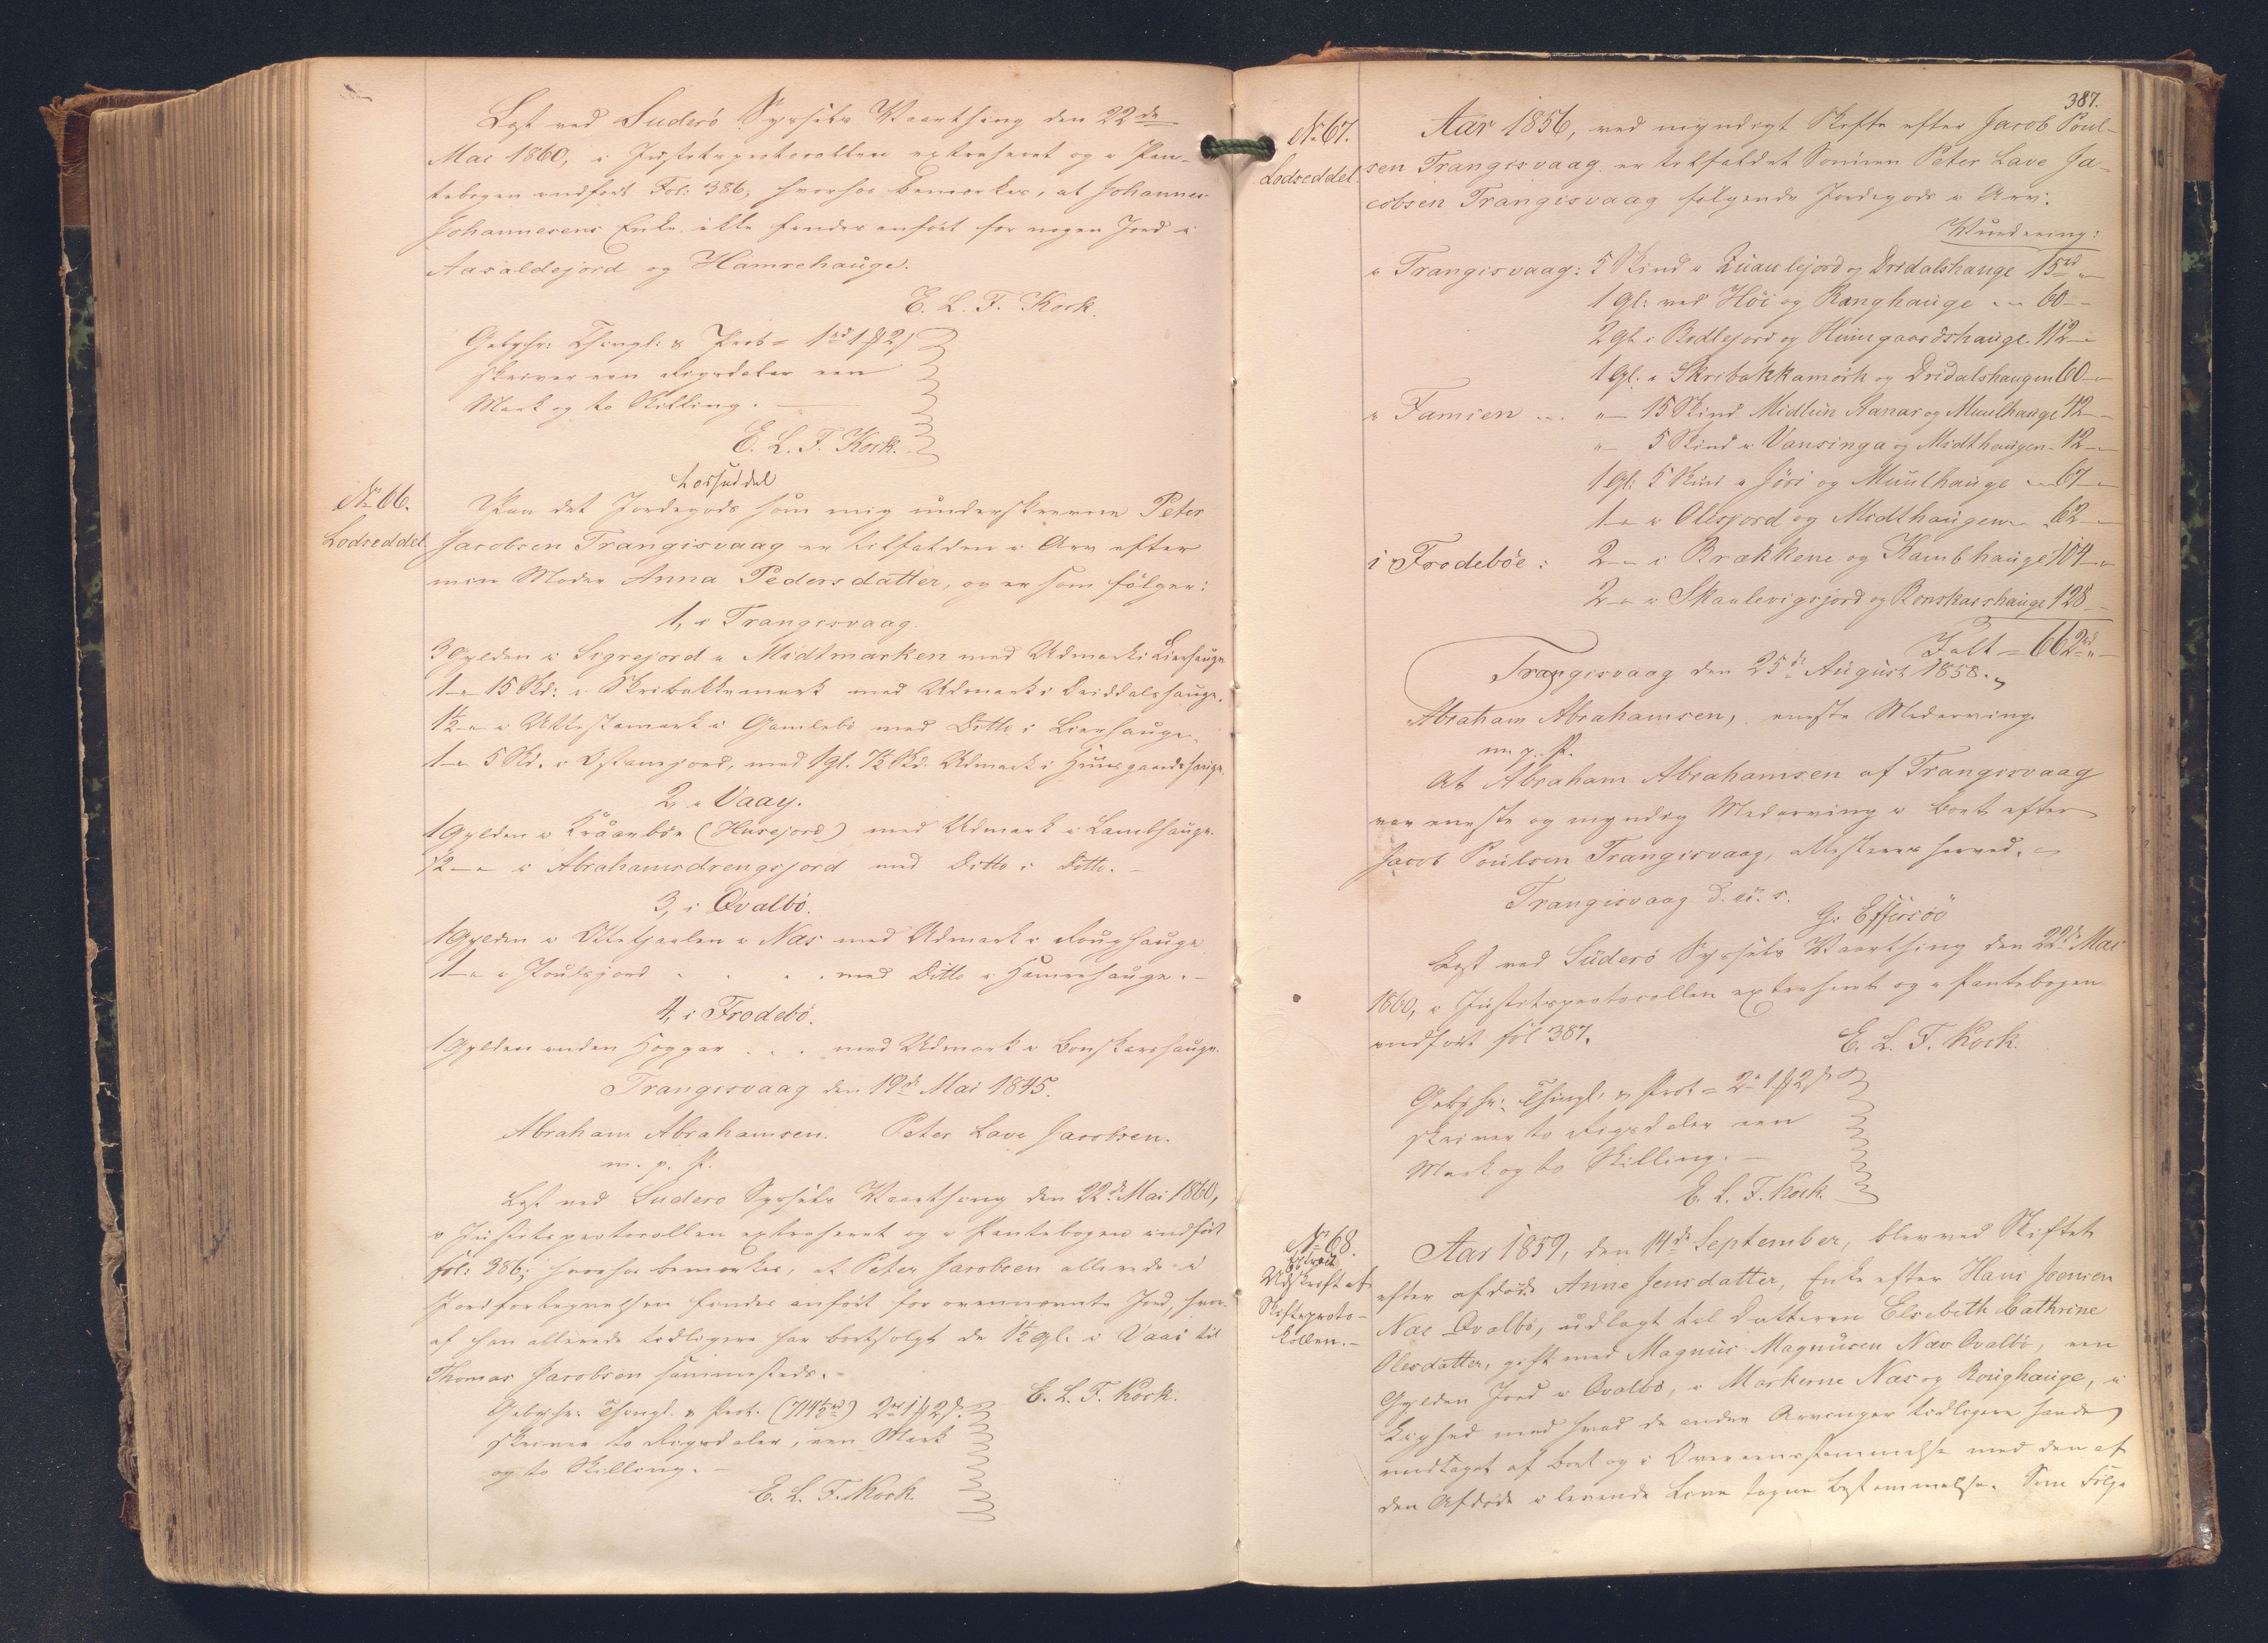 Læst ved Suderø Syssels Vaarthing den 22de
Mai 1860, i Justitsprotocollen extraheret og i Pan-
tebogen indført Fol: 386, hvorhos bemærkes, at Johannes
Johannesens Enke ikke findes anført for nogen Jord i
Aasaldejord og Hamrehauge.
E. L. F. Kock.
Gebyhr: Thingl: & Prot = 1rd 1 ß 2 s
skriver een Rigsdaler een
Mark og to Skilling.
E. L. F. Kock.
Losseddel
No 66.
Lodseddel.
Paa det Jordegods som mig underskrevne Peter
Jacobsen Trangisvaag er tilfalden i Arv efter
min Moder Anna Pedersdatter, og er som følger:
1, i Trangisvaag.
3 Gylden i Sigrejord i Midtmarken med Udmark i Lierhauge
1 - 15 Skd: i Skribakkemark med Udmark i Driddalshauge.
1½ - i i Gamlebö med Ditto i Lierhauge.
1 - 5 Skd. i Østamjord, med 1 gl. 7½ Skd. Udmark i Huusgaardshauge.
2, i Vaag.
1 Gylden i Kråanbön (Husejord) med Udmark i Lambhauge.
½ - i Abrahamsdrengsjord med Ditto i Ditto.
3, i Qvalbö.
1 Gylden i i Næs med Udmark i Roughauge
1 - i Poulsjord . . . med Ditto i Hamrehauge.
4, i Frodebö.
1 Gylden inden Høggar . . . med Udmark i Bonskarshauge.
Trangisvaag den 19de Mai 1845.
Abraham Abrahamsen. Peter Lave Jacobsen.
m. p. P.
Læst ved Suderø Syssels Vaarthing den 22de Mai 1860,
i Justitsprotocollen extraheret og i Pantebogen indført
fol: 386; hvorhos bemærkes, at Peter Jacobsen allerede i
Jordfortegnelsen findes anført for ovennævnte Jord, hvor-
af han allerede tidligere har bortsolgt de 1½ gl. i Vaai til
Thomas Jacobsen sammesteds.
E. L. F. Kock.
Gebyhr: Thingl. & Prot. (714½rd) 2rd 1 ß 2 s.
skriver to Rigsdaler, een Mark
og to Skilling.
E. L. F. Kock.
387.
No 67.
Lodseddel.
Aar 1856, ved myndigt Skifte efter Jacob Poul-
sen Trangisvaag er tilfaldet Sønnen Peter Lave Ja-
cobsen Trangisvaag følgende Jordegods i Arv:
Vurdering:
i Trangisvaag: 5 Skind i Zuaulejord og Dridalshauge 15rd
1 gl: ved Höi og Ranghauge 60
2 gl. i Bødlejord og Huusgaardshauge. 112
1 gl. i Skribakkamørk og Dridalshaugen 60
i Famien ... 15 Skind Midlun Aanas og Muulhauge 42
5 Skind i Vansinga og Midthaugen 12
1 gl: 5 Skind i Jöri og Muulhauge 67
1 - i Olisjord og Midthaugen 62
i Frodebøe: 2 - i Brækkene og Kambhauge 104
2 - i Skaalevigsjord og Bonskarshauge 128
Jalt = 662rd
Trangisvaag den 25de August 1858.
Abraham Abrahamsen, eneste Medarving
m. p. P.
At Abraham Abrahamsen af Trangisvaag
var eneste og myndig Medarving i Boet efter
Jacob Poulsen Trangisvaag, attesteres herved.
Trangisvaag d. u. s.
G. Effersöe
Læst ved Suderø Syssels Vaarthing den 22de Mai
1860, i Justitsprotocollen extraheret og i Pantebogen
indført fol 387.
E. L. F. Kock.
Gebyhr: Thingl. & Prot = 2rd 1 ß 2 s
skriver to Rigsdaler een
Mark og to Skilling.
E. L. F. Kock.
No 68.
Extract
Udskrift af
Skifteproto-
kollen.
Aar 1859, den 14de September, blev ved Skiftet
efter afdøde Anne Jensdatter, Enke efter Hans Joensen
Næs Qvalbö, udlagt til Datteren Elsebeth Cathrine
Olesdatter, gift med Magnus Magnusen Næs Qvalbö, een
Gylden Jord i Qvalbö, i Markerne Næs og Roughauge, i
Lighed med hvad de andre Arvinger tidligere havde
modtaget af Boet og i Overeensstemmelse med den af
den Afdøde i levende Live tagne Bestemmelse. Som Følge